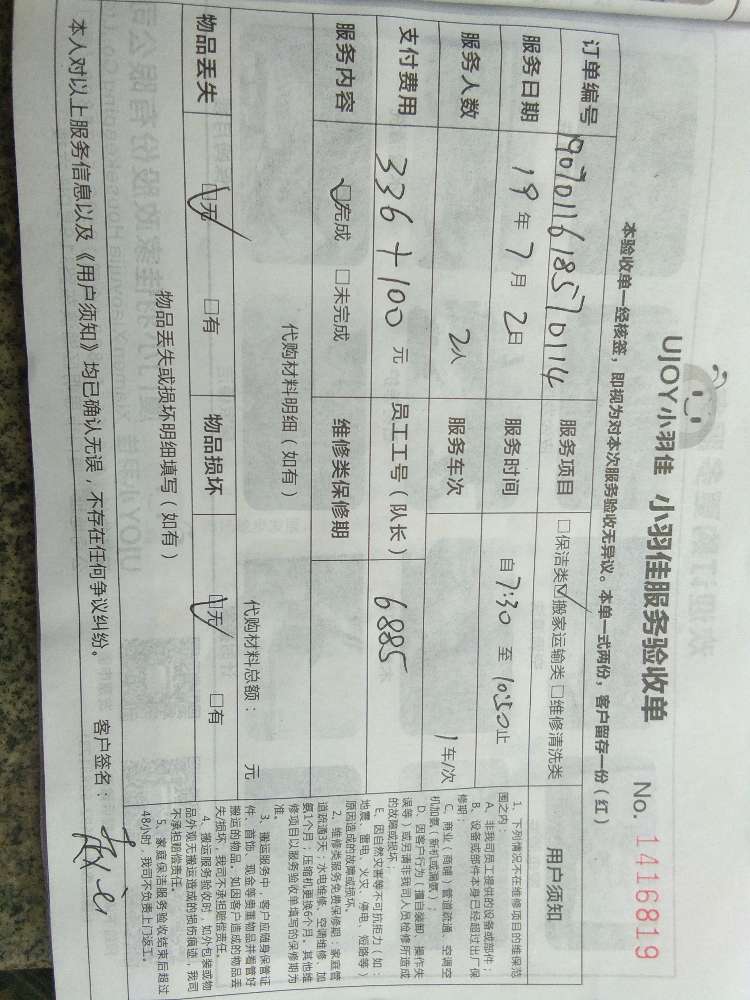 UJOY小羽佳 小羽佳服务验收单 No. 1416819
本验收单一经核签，即视为对本次服务验收无异议。本单一式两份，客户留存一份（红）
订单编号 19070116185701114 服务项目 □保洁类☑搬家运输类□维修清洗类
服务日期 19年7月2日 服务时间 自7:30至10:50止
服务人数 2人 服务车次 1车/次
支付费用 336+100元 员工工号（队长） 6885
服务内容 ☑完成 □未完成 维修类保修期
代购材料明细（如有）
代购材料总额： 元
物品丢失 ☑无 □有 物品损坏 ☑无 □有
物品丢失或损坏明细填写（如有）
本人对以上服务信息以及《用户须知》均已确认无误，不存在任何争议纠纷。 客户签名：
用户须知
1、下列情况不在维修项目的维保范
围之内：
A、非我司员工提供的设备或部件；
B、设备或部件本身已经超过出厂保
修期；
C、商业／商铺（管道疏通、空调空
机加氨、新机或漏氨）；
D、因客户行为（擅自装卸、操作失
误等）或另请非我司人员检修所造成
的故障或损坏。
E、因自然灾害等不可抗拒力（如：
地震、雷电、火灾、停电、短路等）
原因造成的故障或损坏。
2、维修类服务免费保修期：家庭管
道疏通3天、水电维修、空调维修、加
氨1个月；压缩机更换6个月。其他维
修项目以服务验收单填写的保修期为
准。
3、搬运服务中，客户应随身保管证
件、首饰、现金等贵重物品并看管好
搬运的物品，如因客户造成的物品丢
失/损坏，我司不承担赔偿责任。
4、搬运服务验收时，如外包装或物
品外观无搬运造成的损伤痕迹，我司
不承担赔偿责任。
5、家庭保洁服务验收结束后超过
48小时，我司不负责上门返工。